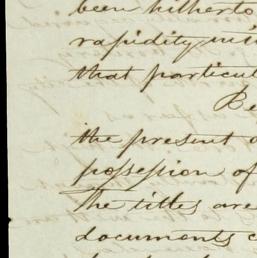 been hitherto
rapidity
that particul
Be
the present
possession of
The titles are
documents